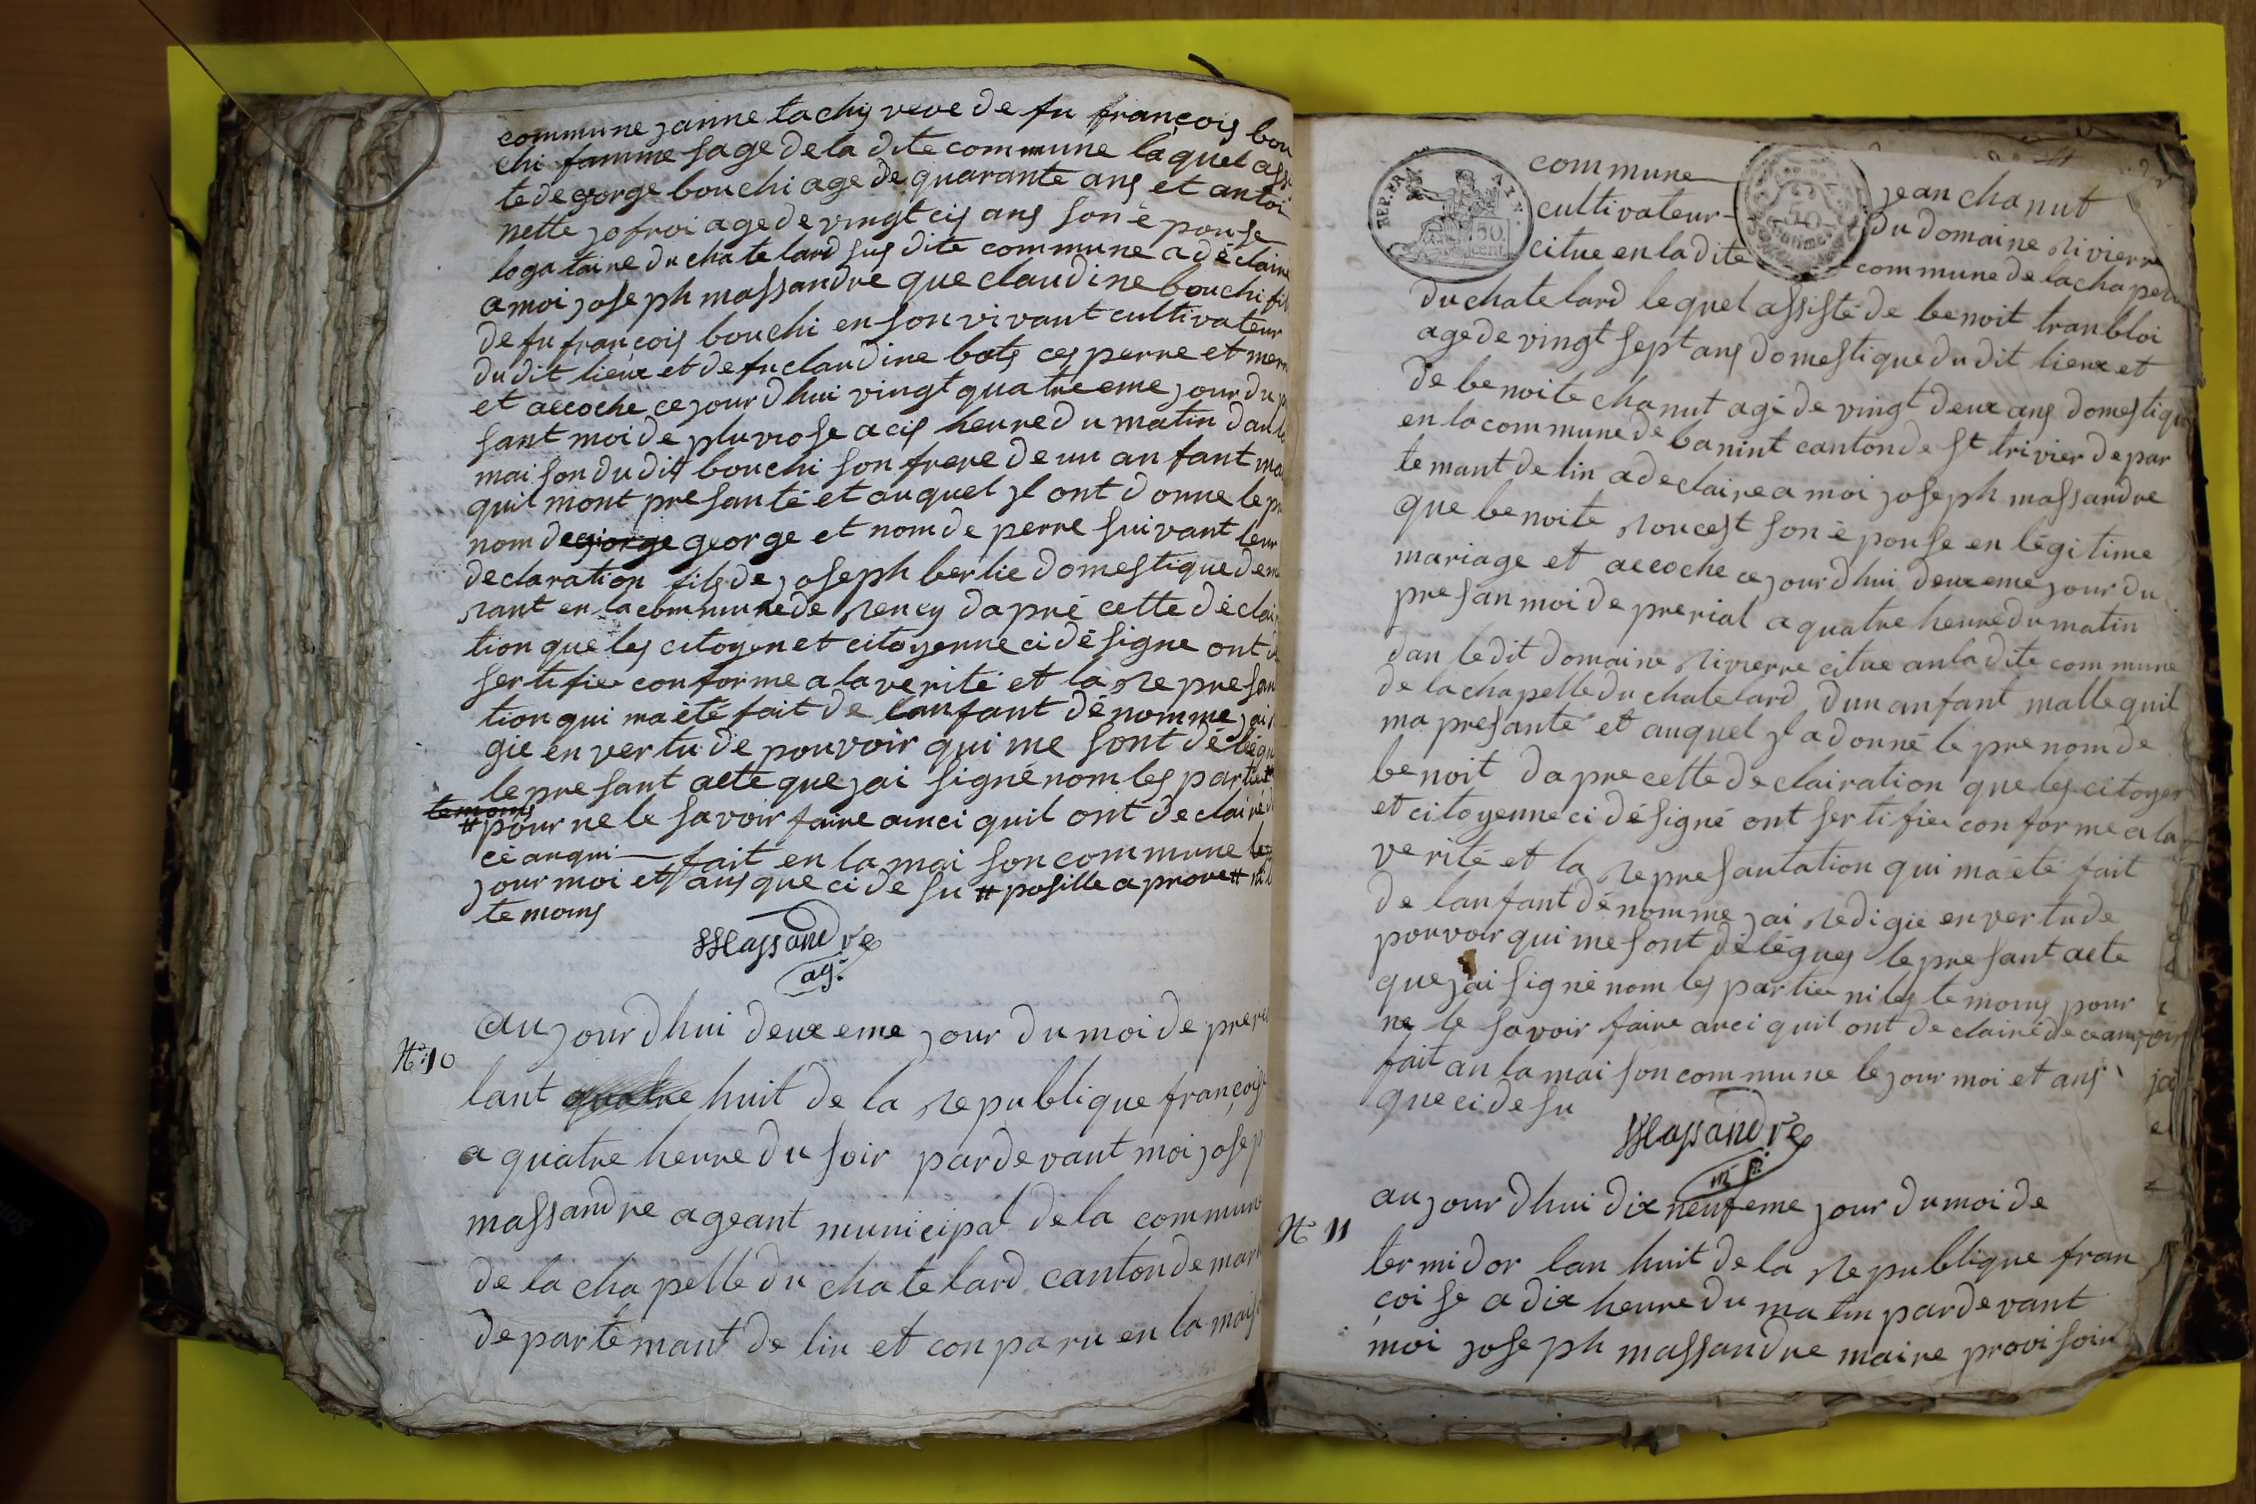 commune janne tachy veve de fu françois bou
chi famme sage de la dite commune laquel assi
te de george bouchi age de quarante ans et antoi
nette jofroi age de vingt cis ans son épouse
logataire du chatelard sus dite commune a déclaire
a moi joseph massandre que claudine bouchi fil
de fu françois bouchi en son vivant cultivateur
du dit lieux et de fu claudine bots ces perre et merre
et accoche ce jour dhui vingt quatreeme jour du
sant moi de pluviose a cis heure du matin dan la
maison du dit bouchi son frere de un anfant ma
quil mont presanté et auquel yl ont donne le pr
nom de gorge george et nom de perre suivant leur
declaration fils de joseph berlie domestique dem
rant en la commune de rency dapré cette déclair
tion que les citoyen et citoyenne ci désigne ont
sertifier conforme a la verité et la represan
tion qui ma été fait de lanfant dénomme jai
gie en vertu de pouvoir qui me sont délégu
le presant acte que jai signé nom les partie
temoins
# pour ne le savoir faire ainci quil ont declairé
ce anqui — fait en la maison commune le
jour moi et ans que ci desu # posille aprouve #
temoins
Massandre
ag:
N°: 10
au jourdhui deuxeme jour du moi de prere
lant quatre huit de la republique françoise
a quatre heure du soir pardevant moi josep
massandre ageant municipal de la commune
de la chapelle du chatelard canton de mar
departemant de lin et conparu en la mais
REP. FRA AIN.
50 cent.
50 centimes
commune jean chanut
cultivateur du domaine rivierre
citue en la dite commune de la chapelle
du chatelard lequel assisté de benoit tranbloi
age de vingt sept ans domestique du dit lieux et
de benoite chanut agé de vingt deux ans domestique
en la commune de banint canton de st trivier depar
temant de lin a declaire a moi joseph massandre
que benoite roucest son épouse en légitime
mariage et accoche ce jourdhui deuxeme jour du
presan moi de prerial a quatre heure du matin
dan le dit domaine rivierre citue an la dite commune
de la chapelle du chatelard dun anfant malle quil
ma presanté et auquel yl a donné le prenom de
benoit dapre cette declairation que les citoyen
et citoyenne ci désigné ont sertifier conforme a la
verité et la represantation qui ma été fait
de lanfant dénommé jai redigie en vertu de
pouvoir qui me sont délégues le presant acte
que jai signé nom les partier ni les temoins pour
ne le savoir faire anci quil ont declairé de ce
fait an la maison commune le jour moi et ans
que ci desu
Massandre
m p:
N° 11
au jourdhui dix neufeme jour du moi de
termidor lan huit de la republique fran
çoise a dix heure du matin pardevant
moi joseph massandre maire provisoir